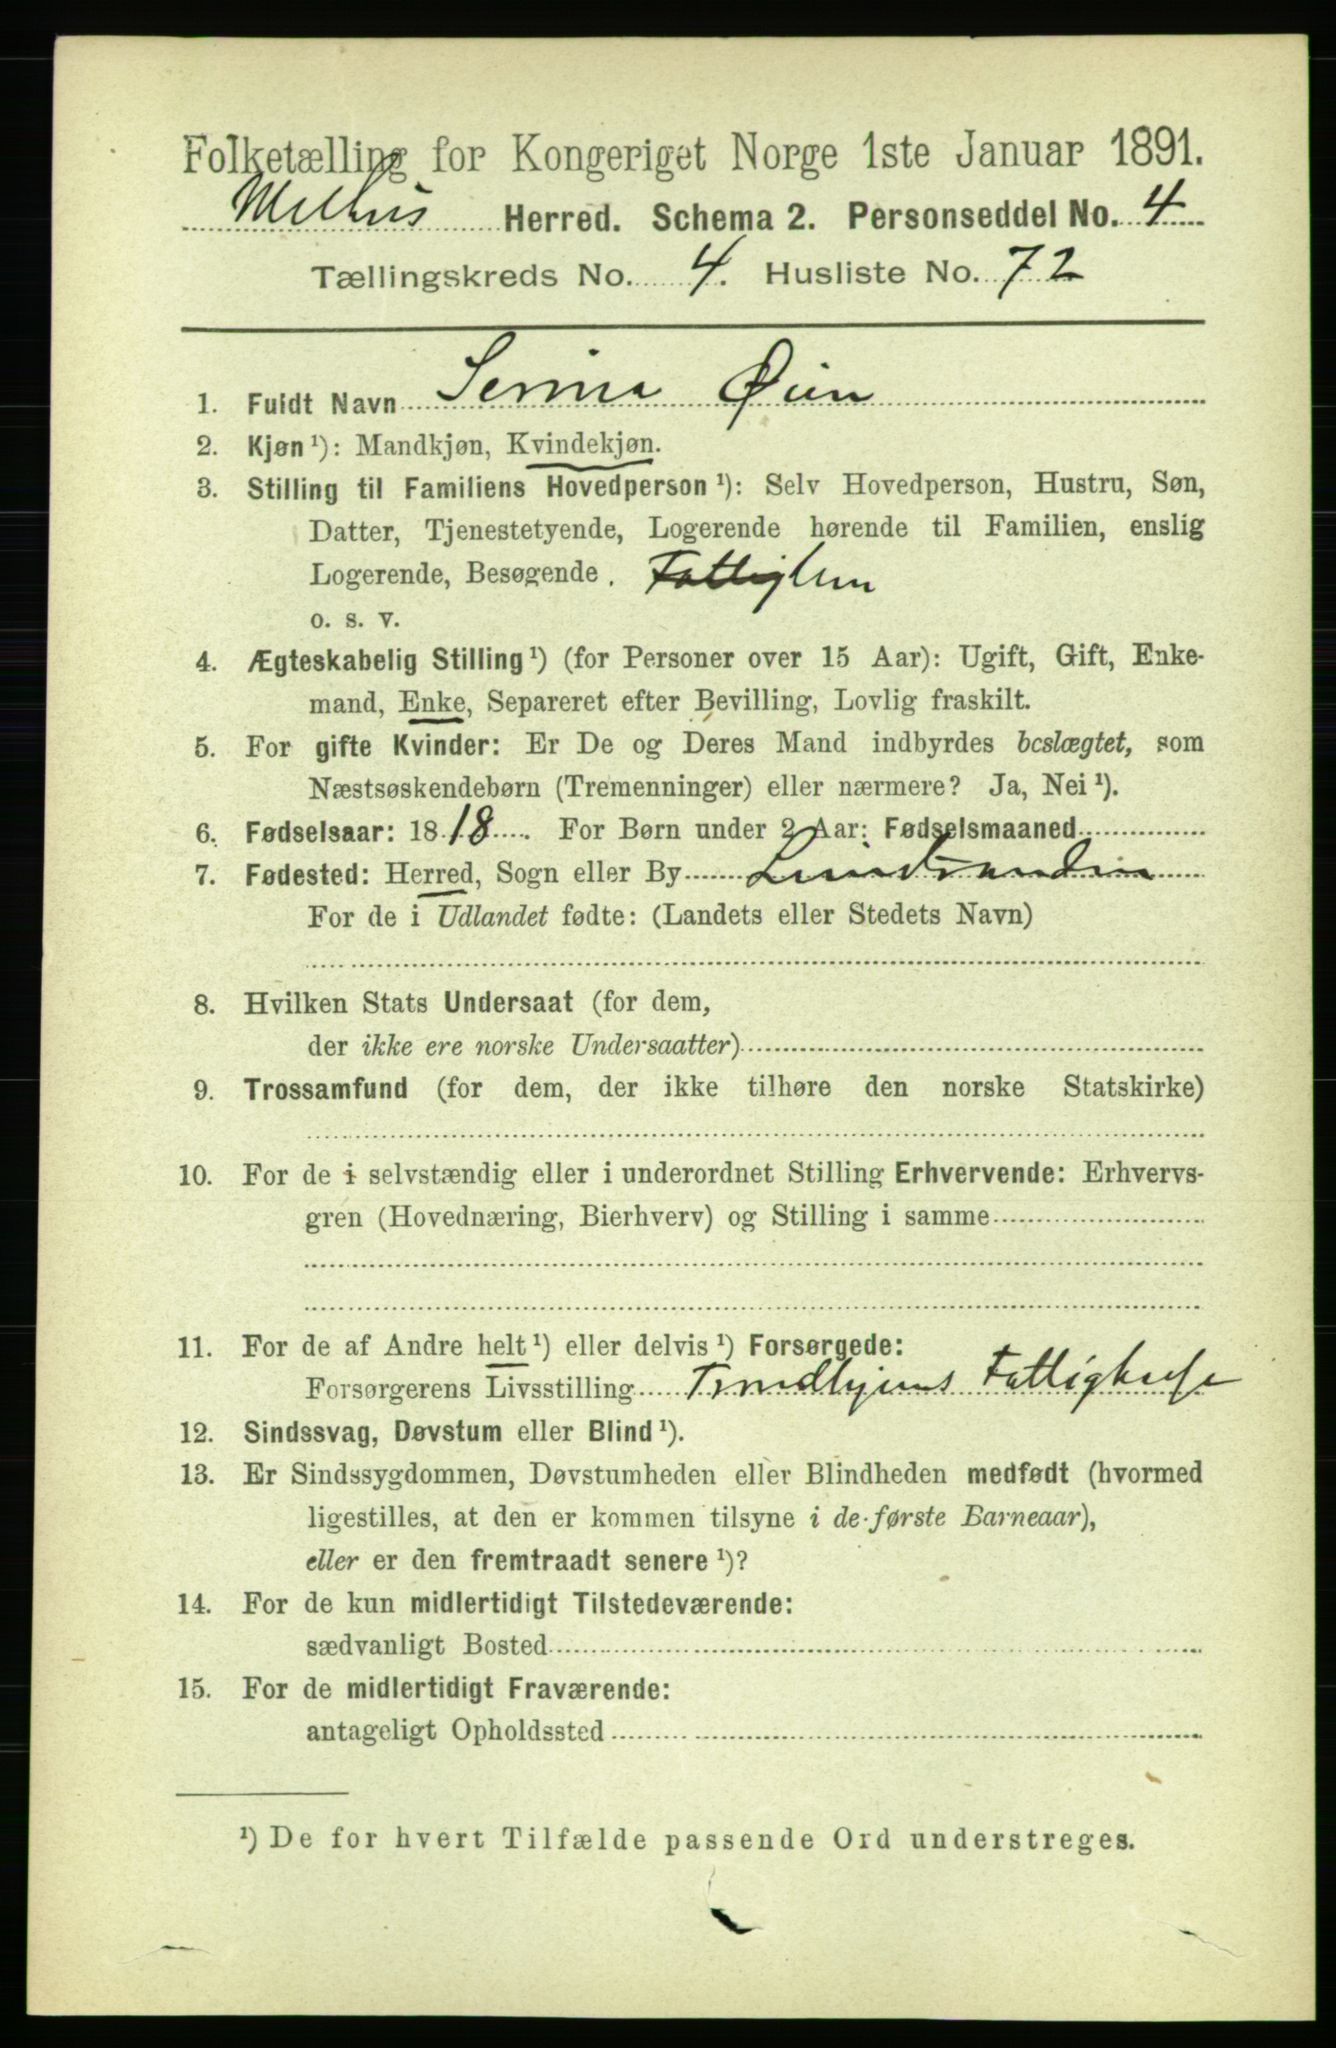 Folketælling for Kongeriget Norge 1ste Januar 1891.
Melhus Herred. Schema 2. Personseddel No. 4
Tællingskreds No. 4. Husliste No. 72
1. Fuldt Navn Serina Øien
2. Kjøn ¹): Mandkjøn, Kvindekjøn.
3. Stilling til Familiens Hovedperson ¹): Selv Hovedperson, Hustru, Søn,
Datter, Tjenestetyende, Logerende hørende til Familien, enslig
Logerende, Besøgende. Fattiglem
o. s. v.
4. Ægteskabelig Stilling ¹) (for Personer over 15 Aar): Ugift, Gift, Enke-
mand, Enke, Separeret efter Bevilling, Lovlig fraskilt.
5. For gifte Kvinder: Er De og Deres Mand indbyrdes beslægtet, som
Næstsøskendebørn (Tremenninger) eller nærmere? Ja, Nei ¹).
6. Fødselsaar: 1818. For Børn under 2 Aar: Fødselsmaaned
7. Fødested: Herred, Sogn eller By
For de i Udlandet fødte: (Landets eller Stedets Navn)
8. Hvilken Stats Undersaat (for dem,
der ikke ere norske Undersaatter)
9. Trossamfund (for dem, der ikke tilhøre den norske Statskirke)
10. For de i selvstændig eller i underordnet Stilling Erhvervende: Erhvervs-
gren (Hovednæring, Bierhverv) og Stilling i samme
11. For de af Andre helt ¹) eller delvis ¹) Forsørgede:
Forsørgerens Livsstilling Trondhjems Fattigkasse
12. Sindssvag, Døvstum eller Blind ¹).
13. Er Sindssygdommen, Døvstumheden eller Blindheden medfødt (hvormed
ligestilles, at den er kommen tilsyne i de første Barneaar),
eller er den fremtraadt senere ¹)?
14. For de kun midlertidigt Tilstedeværende:
sædvanligt Bosted
15. For de midlertidigt Fraværende:
antageligt Opholdssted
¹) De for hvert Tilfælde passende Ord understreges.